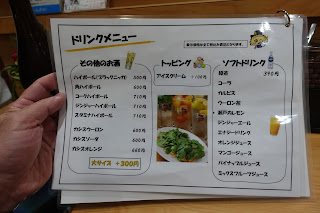 ドリンクメニュー
その他のお酒
ハイボール(ブラックニッカ) 500円
角ハイボール 600円
コークハイボール 710円
ジンジャーハイボール 710円
スタミナハイボール 710円
カシスウーロン 600円
カシスソーダ 600円
カシスオレンジ 660円
大サイズ +300円
トッピング
アイスクリーム +100円
ソフトドリンク
緑茶 390円
コーラ
カルピス
ウーロン茶
瀬戸内レモン
ジンジャーエール
エナジードリンク
オレンジジュース
マンゴージュース
パイナップルジュース
ミックスフルーツジュース